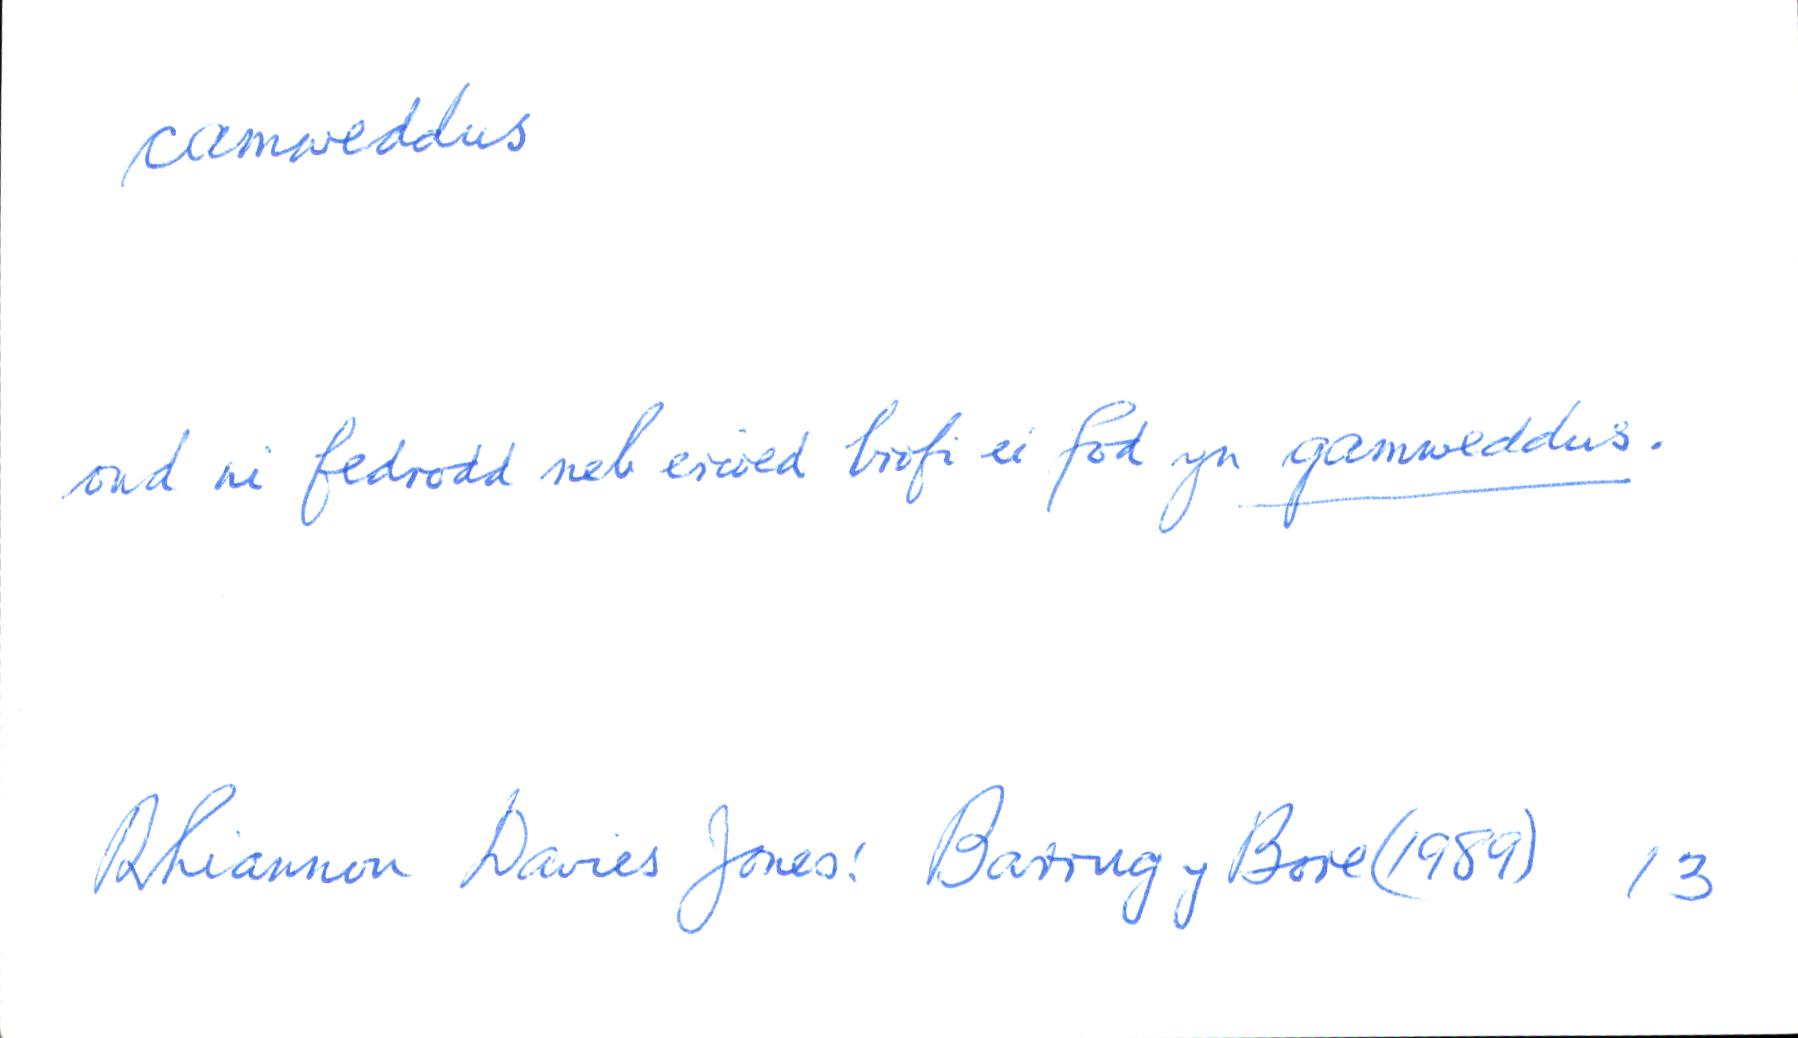 camweddus
ond ni fedrodd neb erioed brofi ei fod yn gamweddus.
Rhiannon Davies Jones: Barrug y Bore (1989) 13